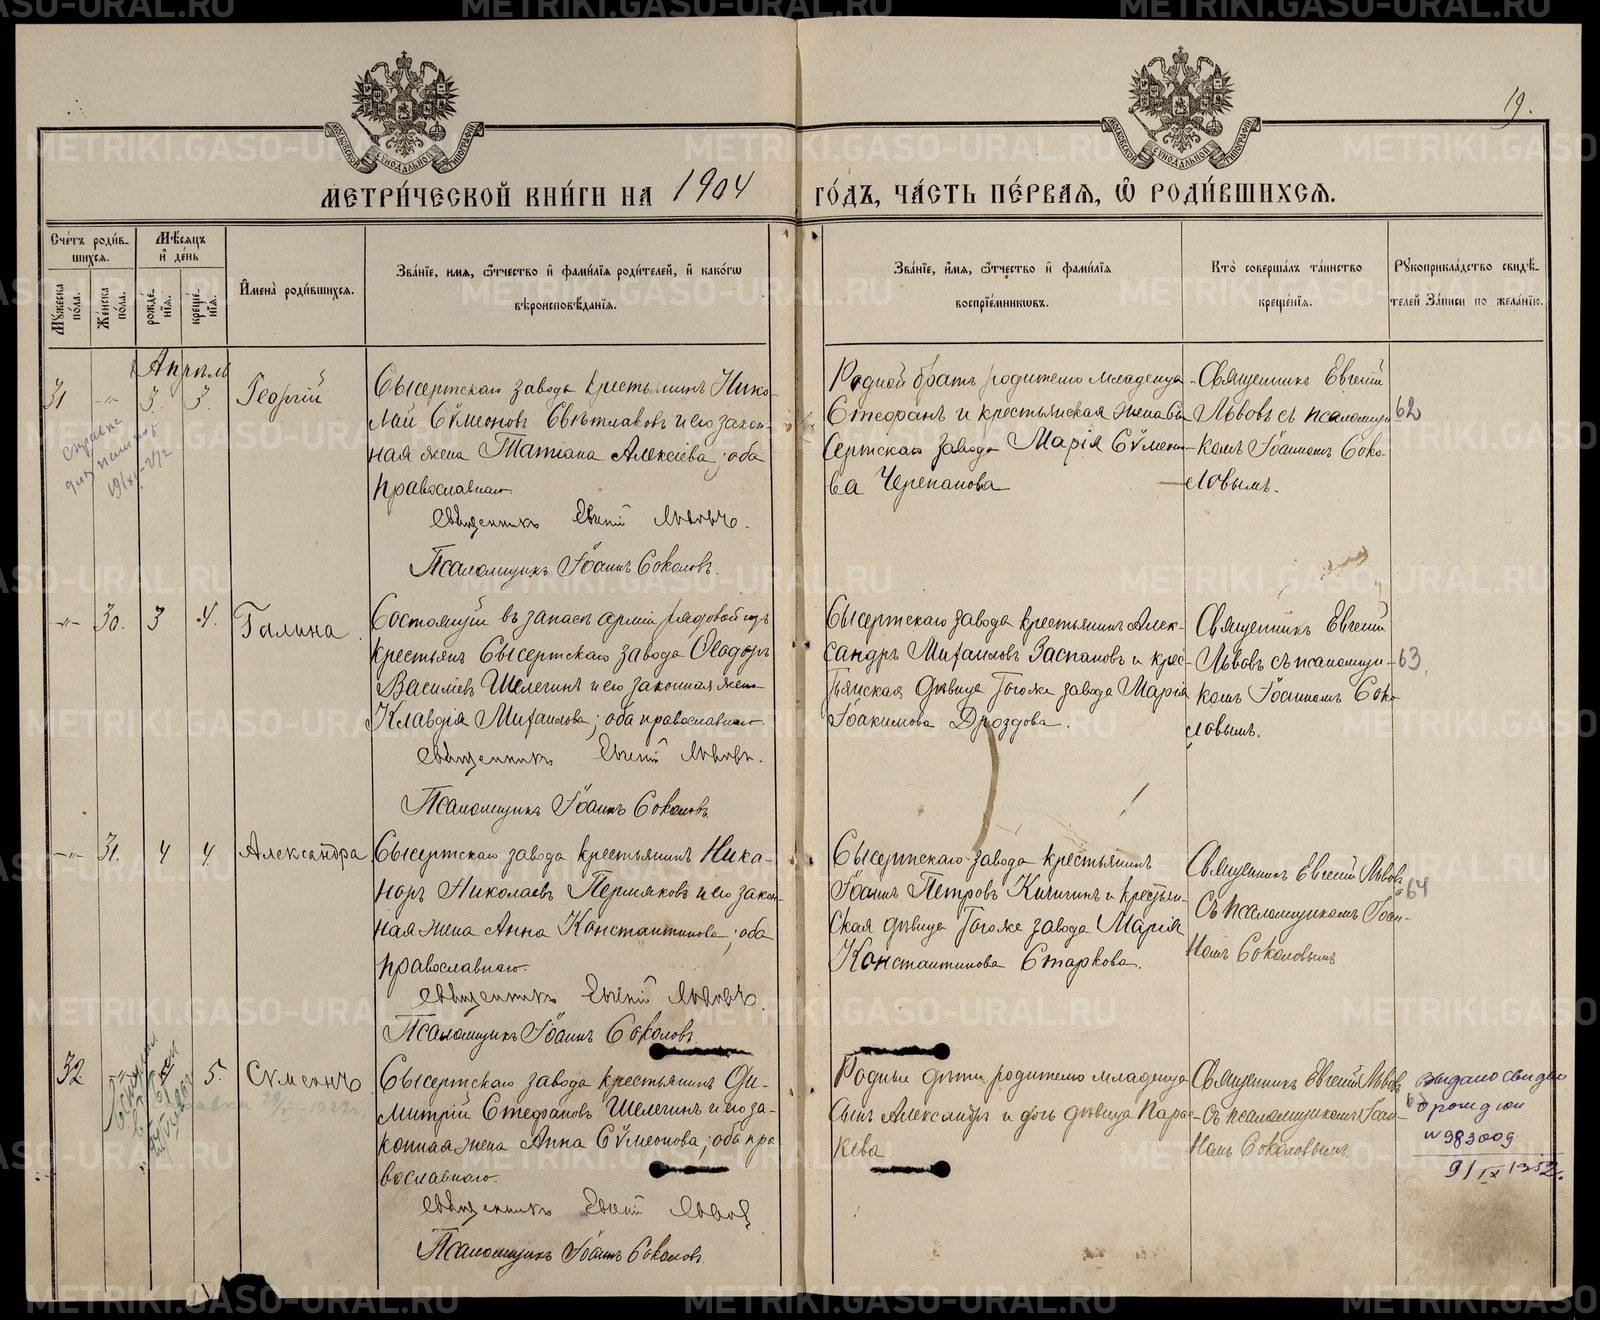 19.
МОСКОВСКОЙ СѴНОДАЛЬНОЙ ТИПОГРАФІИ
МОСКОВСКОЙ СѴНОДАЛЬНОЙ ТИПОГРАФІИ
МЕТРИ́ЧЕСКОЙ КНИ́ГИ НА 1904 ГО́ДЪ, ЧА́СТЬ ПЕ́РВАѦ, Ѽ РОДИ́ВШИХСѦ.
Сче́тъ роди́в-
шихся.
Мѣ́сяцъ
и҆ де́нь
Муже́ска по́ла.
Же́нска по́ла.
рожде́-нїя.
креще́-нїя.
И҆мена̀ роди́вшихся.
Зва́нїе, имя, ѻтчество и҆ фами́лїя роди́телей, и҆ како́гѡ
вѣроисповѣ́данїя.
Зва́нїе, и́мя, ѻтчество и҆ фами́лїя
воспрїе́мникѡвъ.
Кто̀ соверша́лъ та́инство
креще́нїя.
Рукоприкла́дство свидѣ́-
телей За́писи по жела́нїю.
Апрѣль
31 -"- 3. 3. Георгій
Сысертскаго завода крестьянинъ Нико-
лай Сѵмеоновъ Свѣтлаковъ и его закон-
ная жена Татіана Алексіева; оба
православнаго
Священникъ Евгеній Львовъ.
Псаломщикъ Іоаннъ Соколовъ.
Родной братъ родителю младенца
Стефанъ и крестьянская жена Сы-
сертскаго завода Марія Сѵмеоно-
ва Черепанова
Священникъ Евгеній
Львовъ съ псаломщи-
комъ Іоанномъ Соко-
ловымъ.
62
справка
-"- 30. 3 4. Галина
Состоящій въ запасѣ арміи рядовой изъ
крестьянъ Сысертскаго завода Ѳеодоръ
Василіевъ Шелегинъ и его законная жена
Клавдія Михаилова; оба православнаго.
Священникъ Евгеній Львовъ.
Псаломщикъ Іоаннъ Соколовъ.
Сысертскаго завода крестьянинъ Алек-
сандръ Михаиловъ Заспановъ и крес-
тьянская дѣвица того же завода Марія
Іоакимова Дроздова.
Священникъ Евгеній
Львовъ съ псаломщи-
комъ Іоанномъ Соко-
ловымъ.
63
-"- 31. 4 4. Александра
Сысертскаго завода крестьянинъ Ника-
норъ Николаевъ Пермяковъ и его закон-
ная жена Анна Константинова; оба
православнаго.
Священникъ Евгеній Львовъ.
Псаломщикъ Іоаннъ Соколовъ.
Сысертскаго завода крестьянинъ
Іоаннъ Петровъ Кичигинъ и крестьян-
ская дѣвица того же завода Марія
Константинова Старкова.
Священникъ Евгеній Львовъ
съ псаломщикомъ Іоан-
номъ Соколовымъ
64
32 5. Сѵмеонъ
Сысертскаго завода крестьянинъ Ди-
митрій Стефановъ Шелегинъ и его за-
конная жена Анна Сѵмеонова; оба пра-
вославнаго.
Священникъ Евгеній Львовъ
Псаломщикъ Іоаннъ Соколовъ
Родные дѣти родителю младенца
сынъ Александръ и дочь дѣвица Парас-
кева.
Священникъ Евгеній Львовъ
съ псаломщикомъ Іоан-
номъ Соколовымъ.
Выдано свид-во
о рожден
№ 983009
9/IX 1952.
METRIKI.GASO-URAL.RU